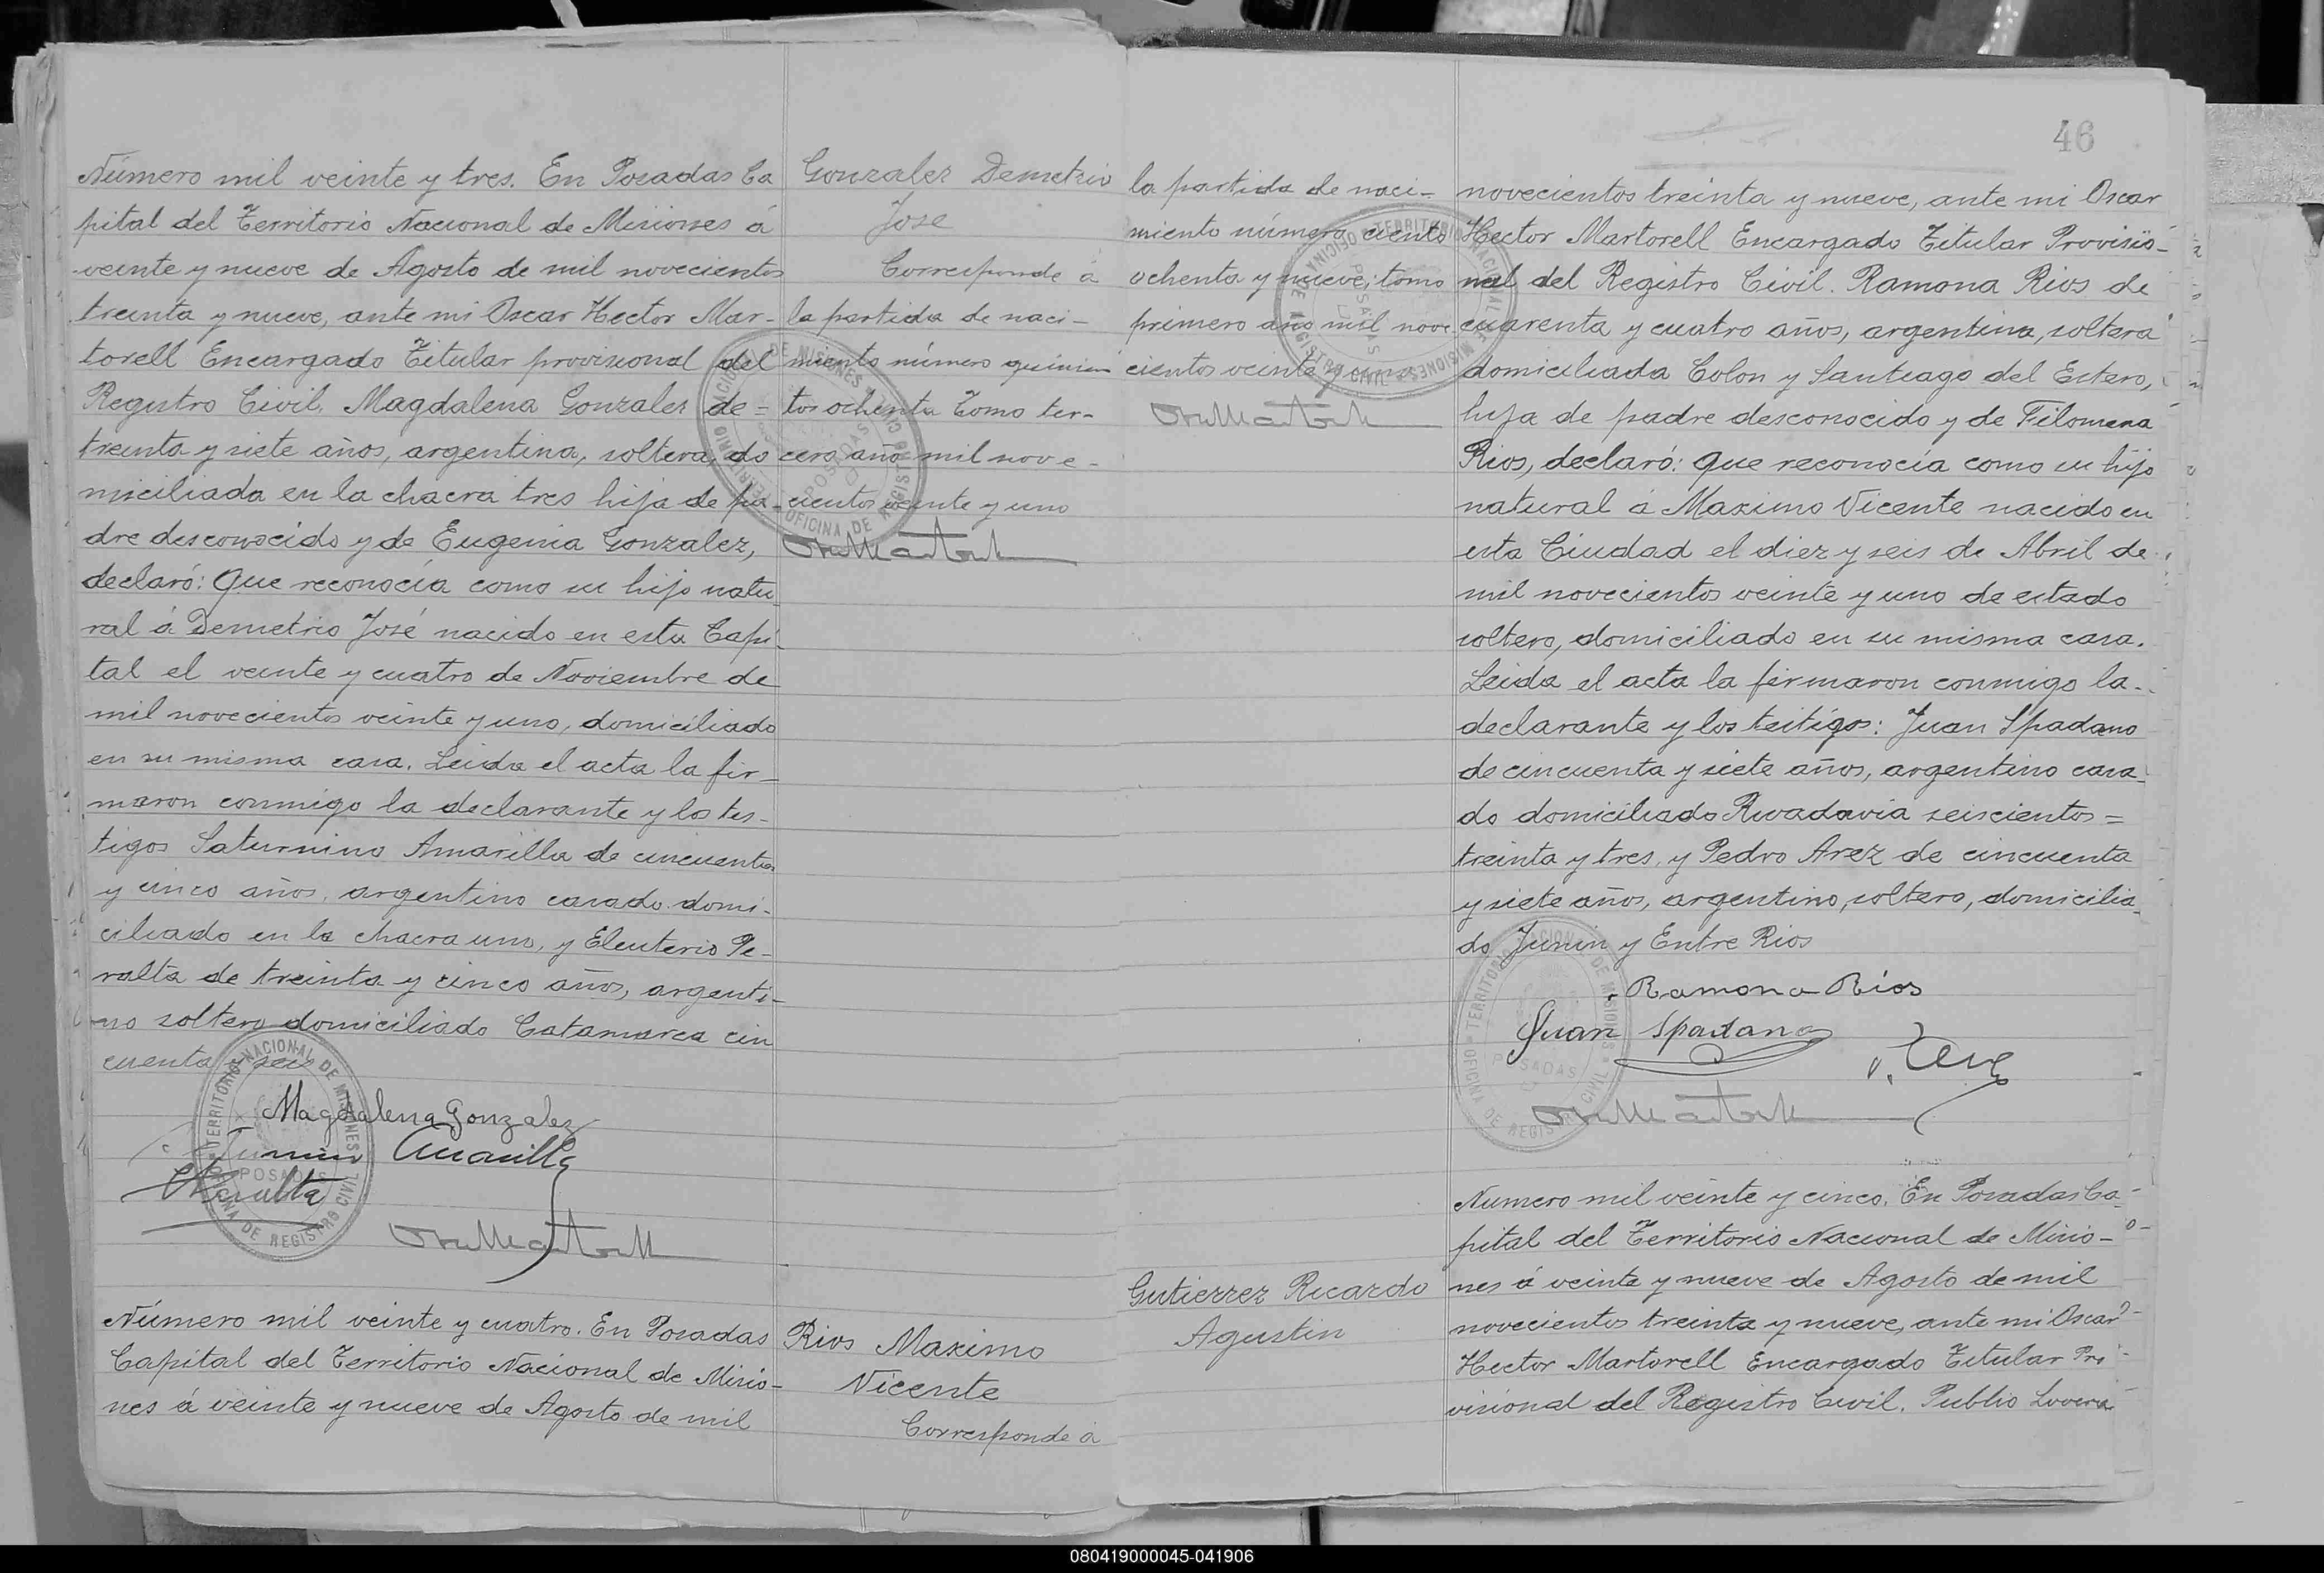 Número mil veinte y tres. En Posadas Ca
pital del Territorio Nacional de Misiones á
veinte y nueve de Agosto de mil novecientos
treinta y nueve, ante mi Oscar Hector Mar-
torell Encargado Titular provisional del
Registro Civil. Magdalena Gonzales de=
treinta y siete años, argentina, soltera, do
miciliada en la chacra tres hija de pa-
dre desconocido y de Eugenia Gonzalez,
declaró: Que reconocía como su hijo natu
ral á Demetrio José nacido en esta Capi-
tal el veinte y cuatro de Noviembre de
mil novecientos veinte y uno, domiciliado
en su misma casa. Leida el acta la fir-
maron conmigo la declarante y los tes-
tigos Saturnino Amarilla de cincuenta
y cinco años, argentino casado domi-
ciliado en la chacra uno, y Eleuterio Pe-
ralta de treinta y cinco años, argenti-
no soltero domiciliado Catamarca cin
cuenta y seis
Magdalena Gonzalez
Amarilla
Peralta
TERRITORIO NACIONAL DE MISIONES
OFICINA DE REGISTRO CIVIL
POSADAS
Número mil veinte y cuatro. En Posadas
Capital del Territorio Nacional de Misio-
nes á veinte y nueve de Agosto de mil
Gonzalez Demetrio
Jose
Corresponde á
la partida de naci-
miento número quinien
tos ochenta Tomo ter-
cero año mil nove-
cientos veinte y uno
TERRITORIO NACIONAL DE MISIONES
OFICINA DE REGISTRO CIVIL
POSADAS
Rios Maximo
Vicente
Corresponde á
la partida de naci-
miento número ciento
ochenta y nueve, tomo
primero año mil nove-
cientos veinte y uno
TERRITORIO NACIONAL DE MISIONES
OFICINA DE REGISTRO CIVIL
POSADAS
Gutierrez Ricardo
Agustin
46
novecientos treinta y nueve, ante mi Oscar
Hector Martorell Encargado Titular Provisio-
nal del Registro Civil. Ramona Rios de
cuarenta y cuatro años, argentina, soltera
domiciliada Colon y Santiago del Estero,
hija de padre desconocido y de Filomena
Rios, declaró: Que reconocía como su hijo
natural á Maximo Vicente nacido en
esta Ciudad el diez y seis de Abril de
mil novecientos veinte y uno de estado
soltero, domiciliado en su misma casa.
Leida el acta la firmaron conmigo la
declarante y los testigos: Juan Spadano
de cincuenta y siete años, argentino casa-
do domiciliado Rivadavia seiscientos=
treinta y tres, y Pedro Arez de cincuenta
y siete años, argentino, soltero, domicilia-
do Junin y Entre Rios
Ramona Rios
Juan Spadano
TERRITORIO NACIONAL DE MISIONES
OFICINA DE REGISTRO CIVIL
POSADAS
Numero mil veinte y cinco. En Posadas Ca-
pital del Territorio Nacional de Misio-
nes á veinte y nueve de Agosto de mil
novecientos treinta y nueve, ante mi Oscar
Hector Martorell Encargado Titular Pro-
visional del Registro Civil. Publio Lovera
080419000045-041906